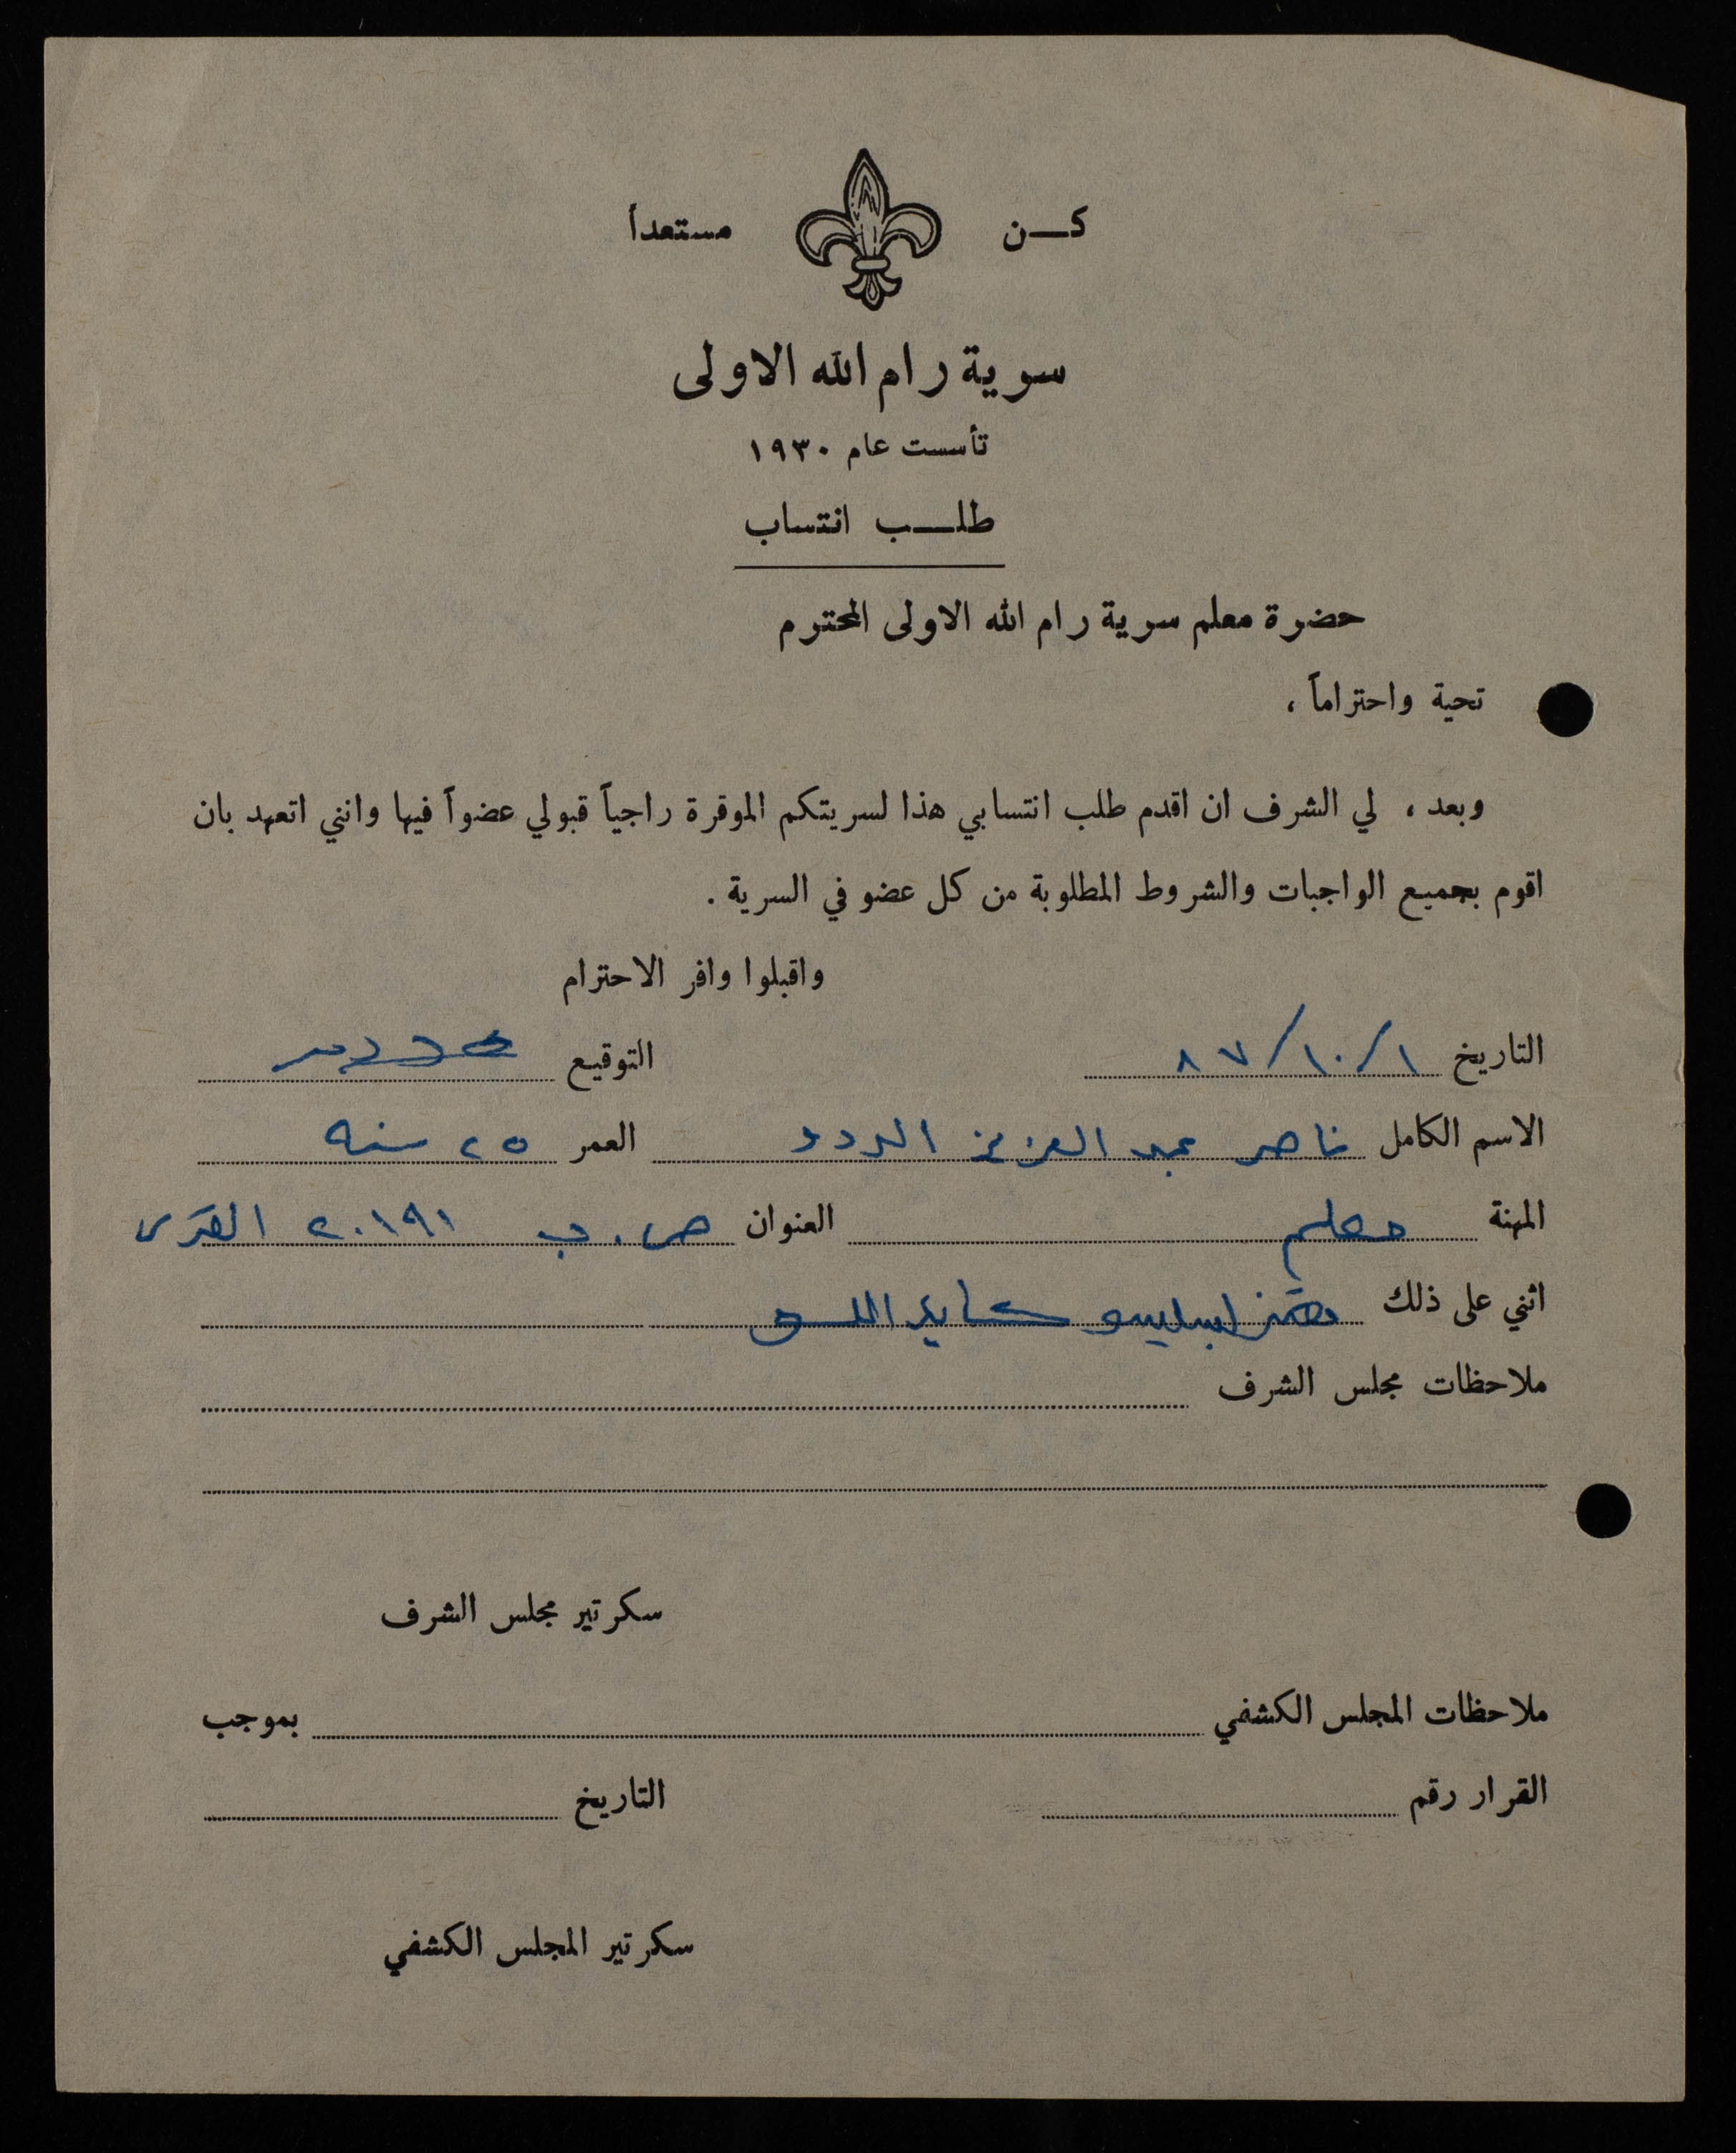 كــن مستعداً
سرية رام الله الاولى
تأسست عام ١٩٣٠
طلــب انتساب
حضرة معلم سرية رام الله الاولى المحترم
تحية واحتراماً ،
وبعد ، لي الشرف ان اقدم طلب انتسابي هذا لسريتكم الموقرة راجياً قبولي عضواً فيها وانني اتعهد بان
اقوم بجميع الواجبات والشروط المطلوبة من كل عضو في السرية .
واقبلوا وافر الاحترام
التاريخ ١/١٠/٨٧ التوقيع
الاسم الكامل ناصر عبد العزيز العمر ٢٥ سنه
المهنة معلم العنوان ص.ب ٢٠١٩١ القدس
اثني على ذلك
ملاحظات مجلس الشرف
سكرتير مجلس الشرف
ملاحظات المجلس الكشفي بموجب
القرار رقم التاريخ
سكرتير المجلس الكشفي